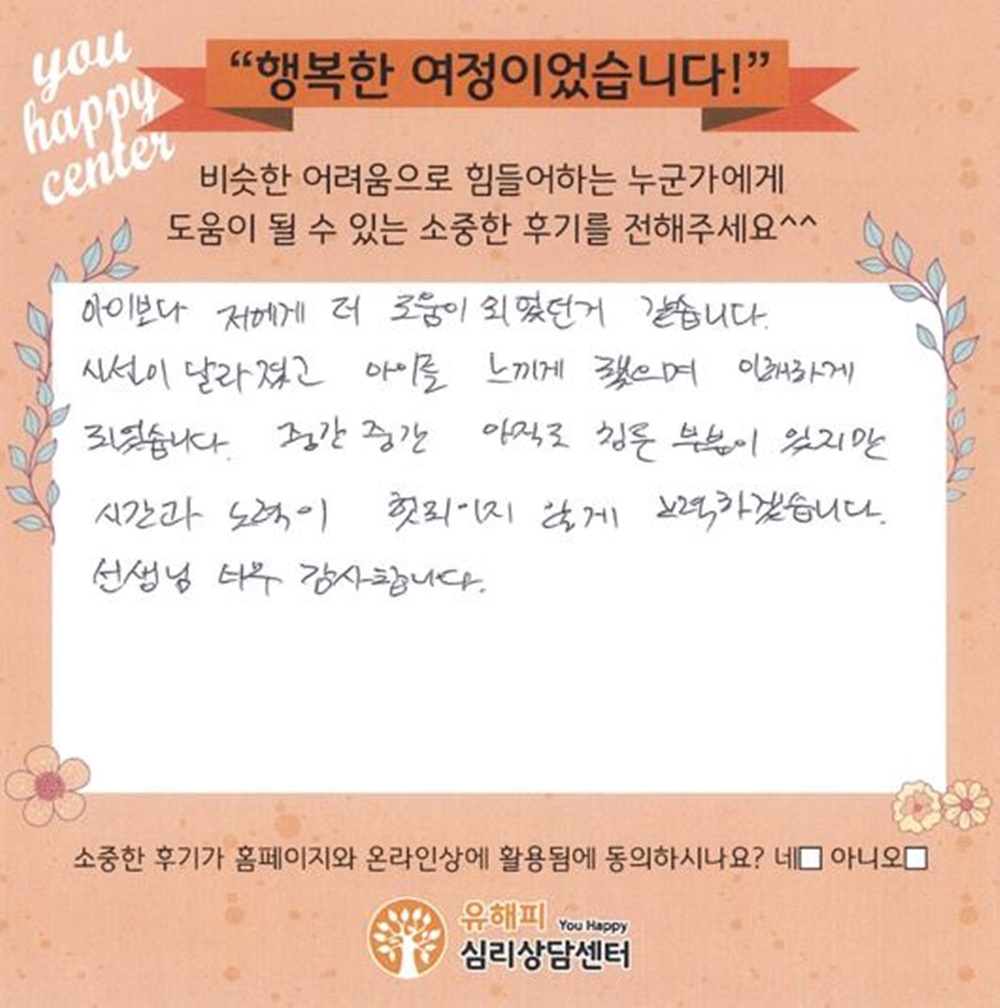 you
happy
center
“행복한 여정이었습니다!”
비슷한 어려움으로 힘들어하는 누군가에게
도움이 될 수 있는 소중한 후기를 전해주세요^^
아이보다 저에게 더 도움이 되었던거 같습니다.
시선이 달라졌고 아이를 느끼게 됐으며 이해하게
되었습니다. 중간 중간 아직도 힘든 부분이 있지만
시간과 노력이 헛되이지 않게 노력하겠습니다.
선생님 너무 감사합니다.
소중한 후기가 홈페이지와 온라인상에 활용됨에 동의하시나요? 네□ 아니오□
유해피 You Happy
심리상담센터